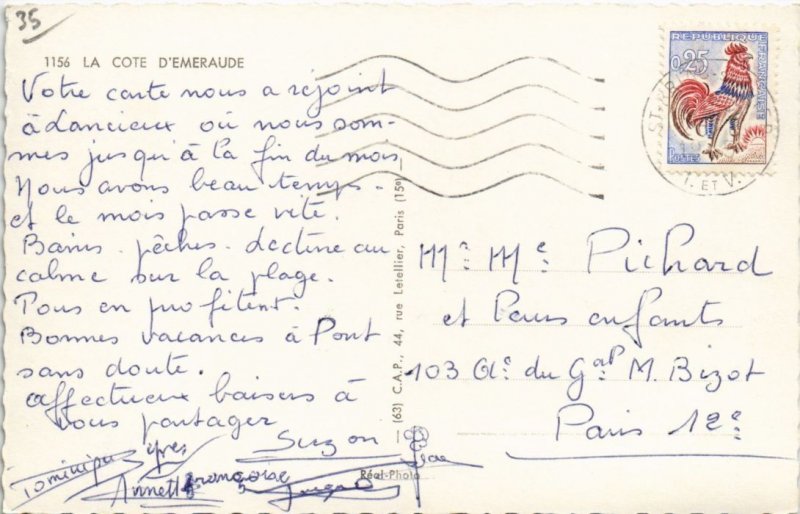 35
1156 LA COTE D'EMERAUDE
Votre carte nous a rejoint
à Lancieux où nous som-
mes jusqu'à la fin du mois
Nous avons beau temps.
et le mois passe vite.
Bains. pêches. lecture au
calme sur la plage.
Tous en profitent.
Bonnes vacances à Pont
sans doute.
affectueux baisers à
vous partager
Suzon
Dominique Yves
Annette Françoise
(63) C.A.P., 44, rue Letellier, Paris (15e)
Réal-Photo
REPUBLIQUE FRANÇAISE
0,25
POSTES
I. ET V.
Mr Me Pichard
et leurs enfants
103 Av. du Gal M. Bizot
Paris 12e